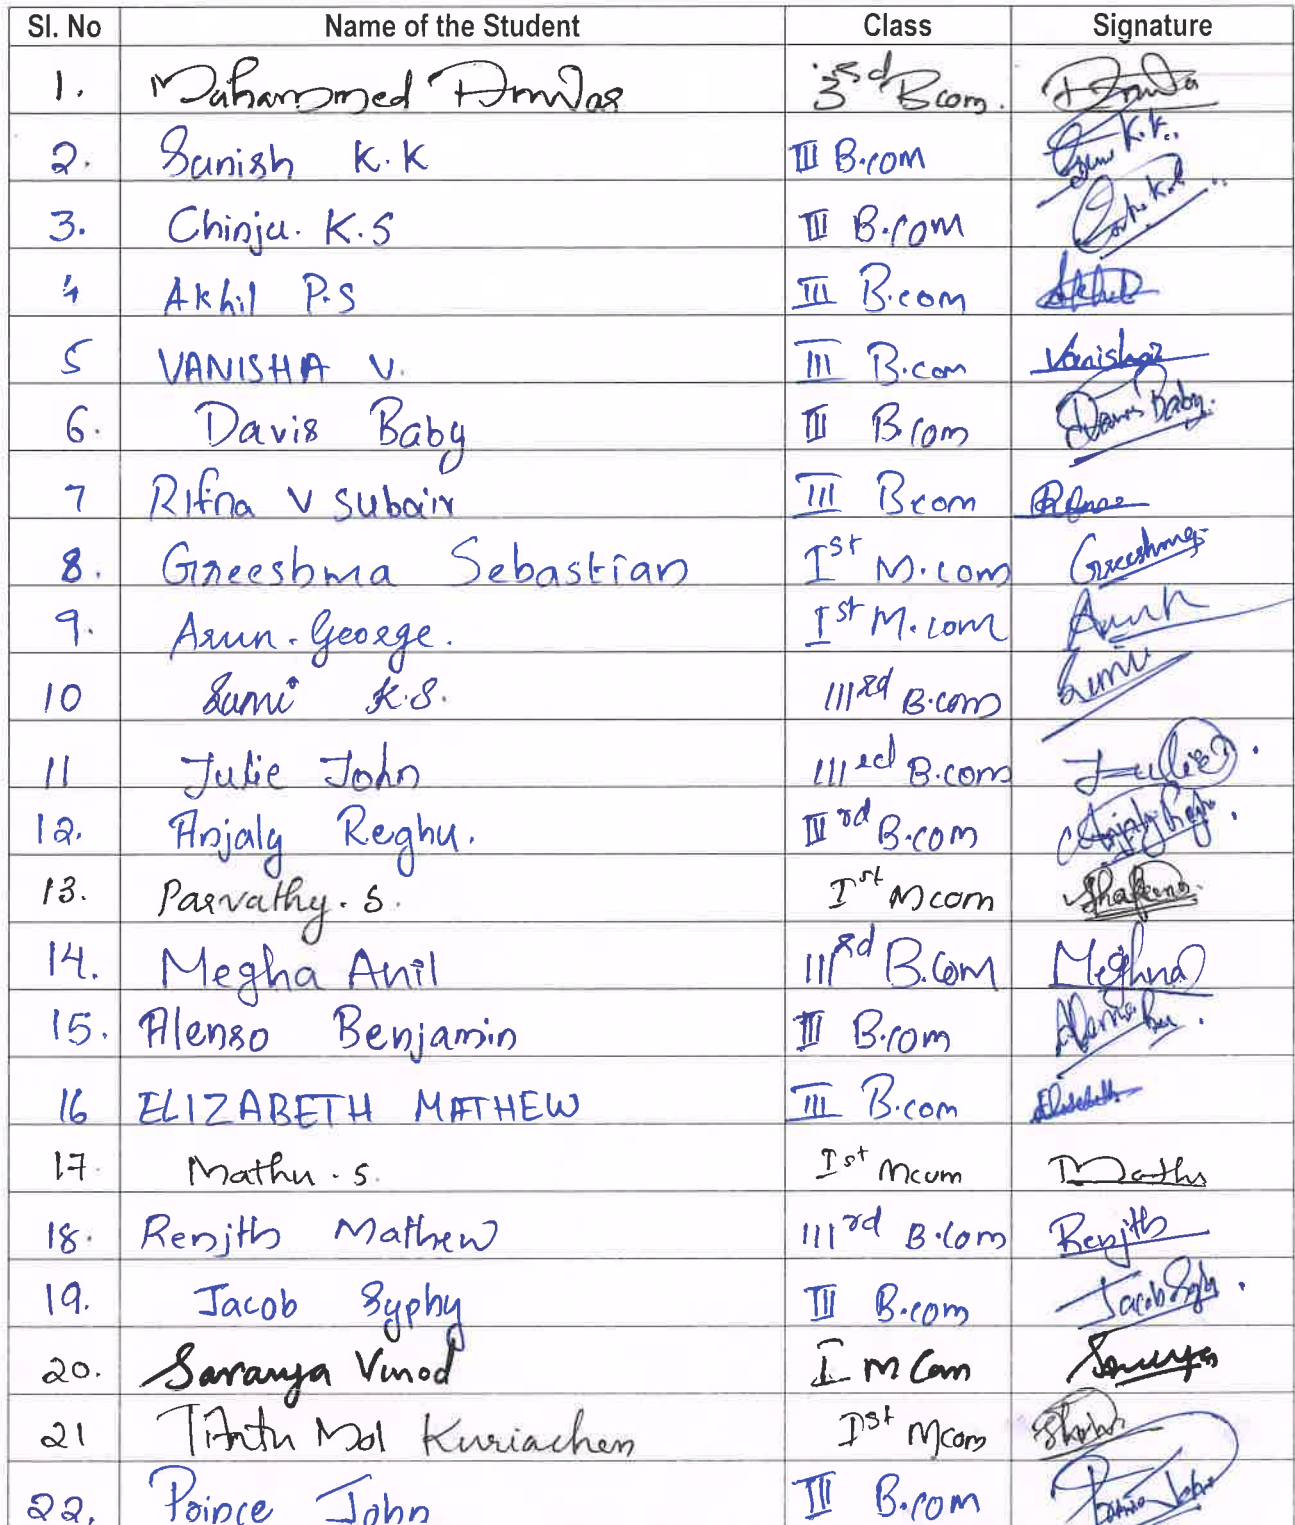 Sl. No Name of the Student Class Signature
1. Muhammed 3rd Bcom.
2. Sanish K.K III B.com K.K..
3. Chinju. K.S III B.com
4 Akhil P.S III B.com Akhil
5 VANISHA V. III B.com Vanisha
6. Davis Baby III B.com Davis Baby.
7 Rifna V Subair III Bcom Rifna
8. Greeshma Sebastian Ist M.com Greeshma
9. Arun. George. Ist M.com Arun
10 Sumi K.S. IIIrd B.com Sumi
11 Julie John IIIrd B.com Julie
12. Anjaly Reghu. IIIrd B.com Anjaly Reghu
13. Parvathy. S. Ist Mcom
14. Megha Anil IIIrd B.Com Meghna
15. Alenso Benjamin III B.com
16 ELIZABETH MATHEW III B.com Elizabeth
17. Mathu. S. Ist Mcom Mathu
18. Renjith Mathew IIIrd B.Com Renjith
19. Jacob Syphy III B.com Jacob Syphy.
20. Saranya Vinod I M Com Saranya
21 Tintu Mol Kuriachen Ist Mcom
22. Prince John III B.com John